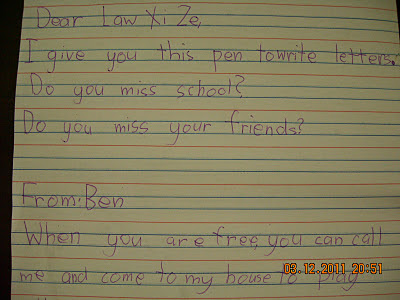 Dear Law Xi Ze,
I give you this pen towrite letters.
Do you miss school?
Do you miss your friends?
From:Ben
When you are free, you can call
me and come to my house to play
03.12.2011 20:51